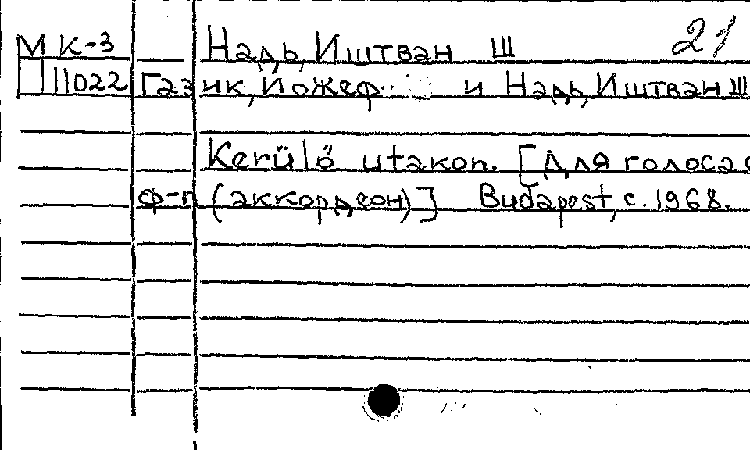 МК-3 Надь, Иштван III 21
П11022 Газик, Йожеф и Надь, Иштван III
Kerülő utakon. [Для голоса с
ф-п (аккордеон)] Budapest, c. 1968.